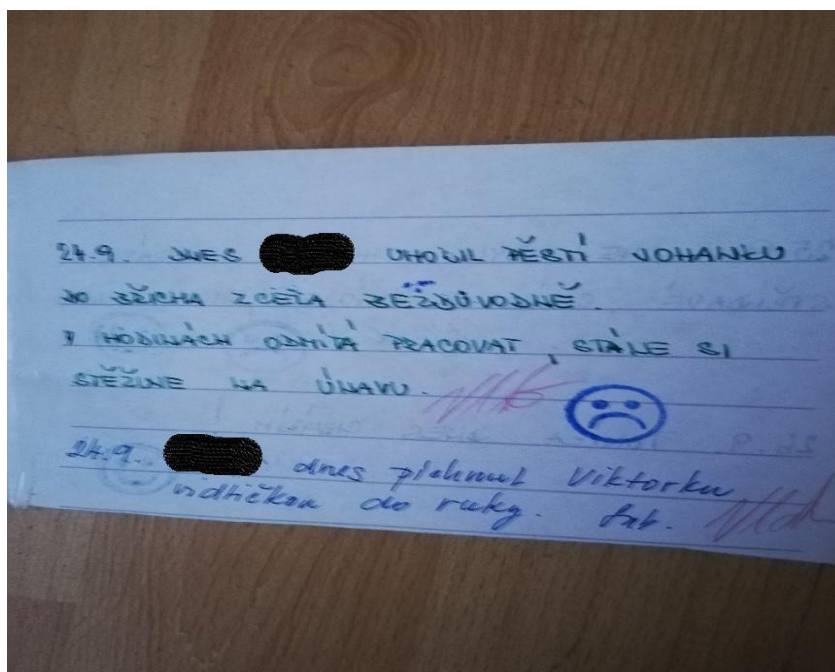 24.9. DNES UHODIL PĚSTÍ JOHANKU
DO BŘICHA ZCELA BEZDŮVODNĚ.
V HODINÁCH ODMÍTÁ PRACOVAT, STÁLE SI
STĚŽUJE NA ÚNAVU.
24.9. dnes píchnul Viktorku
vidličkou do ruky.